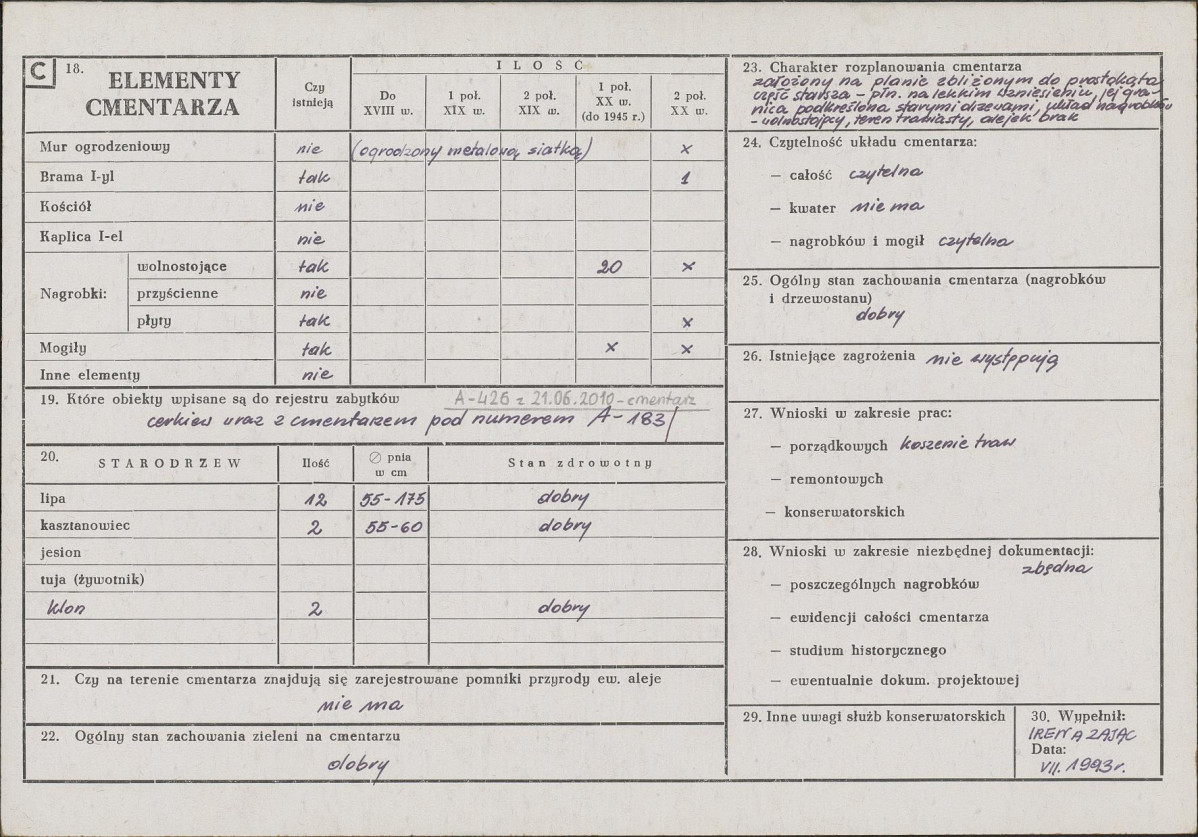 C 18. ELEMENTY CMENTARZA
Czy istnieją
ILOŚĆ
Do XVIII w.
1 poł. XIX w.
2 poł. XIX w.
1 poł. XX w. (do 1945 r.)
2 poł. XX w.
Mur ogrodzeniowy nie (ogrodzony metalową siatką) x
Brama I-yl tak 1
Kościół nie
Kaplica I-el nie
Nagrobki: wolnostojące tak 20 x
przyścienne nie
płyty tak x
Mogiły tak x x
Inne elementy nie
19. Które obiekty wpisane są do rejestru zabytków A-426 z 21.06.2010 - cmentarz
cerkiew wraz z cmentarzem pod numerem A-183/
20. STARODRZEW Ilość ∅ pnia w cm Stan zdrowotny
lipa 12 55-175 dobry
kasztanowiec 2 55-60 dobry
jesion
tuja (żywotnik)
klon 2 dobry
21. Czy na terenie cmentarza znajdują się zarejestrowane pomniki przyrody ew. aleje
nie ma
22. Ogólny stan zachowania zieleni na cmentarzu
dobry
23. Charakter rozplanowania cmentarza
założony na planie zbliżonym do prostokąta
część starsza - płn. na lekkim wzniesieniu, jej gra-
nica podkreślona starymi drzewami, układ nagrobków
- wolnostojący, teren trawiasty, alejek brak
24. Czytelność układu cmentarza:
— całość czytelna
— kwater nie ma
— nagrobków i mogił czytelna
25. Ogólny stan zachowania cmentarza (nagrobków
i drzewostanu)
dobry
26. Istniejące zagrożenia nie występują
27. Wnioski w zakresie prac:
— porządkowych koszenie traw
— remontowych
— konserwatorskich
28. Wnioski w zakresie niezbędnej dokumentacji:
zbędna
— poszczególnych nagrobków
— ewidencji całości cmentarza
— studium historycznego
— ewentualnie dokum. projektowej
29. Inne uwagi służb konserwatorskich
30. Wypełnił:
IRENA ZAJĄC
Data:
VII. 1993 r.